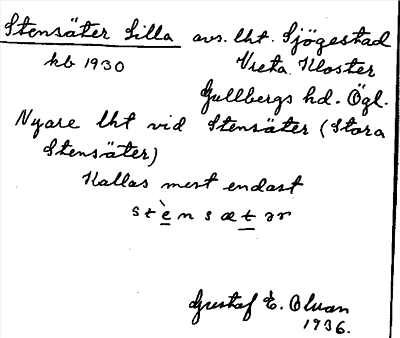 Stensäter Lilla avs. lht. Sjögestad
kb 1930 Vreta Kloster
Gullbergs hd. Ögl.
Nyare lht vid Stensäter (Stora
Stensäter)
Kallas mest endast
stè̱nsæṯər
Gustaf E. Olvan
1936.